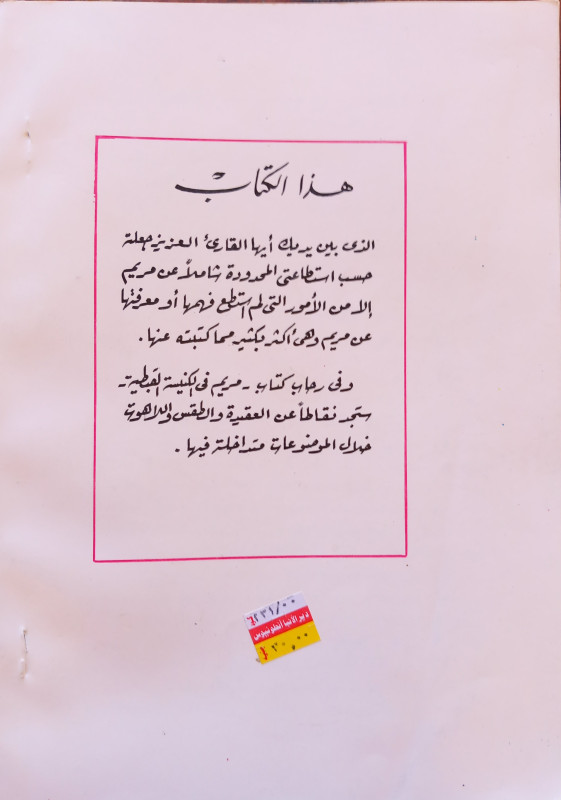 هذا الكتاب
الذى بين يديك أيها القارئ العزيز جعلته
حسب استطاعتى المحدودة شاملاً عن مريم
إلا من الأمور التى لم استطع فهمها أو معرفتها
عن مريم وهى أكثر بكثير مما كتبته عنها .
وفى رحاب كتاب - مريم فى الكنيسة القبطية -
ستجد نقاطاً عن العقيدة والطقس واللاهوت
خلال الموضوعات متداخلة فيها .
٢٣١/٠٠
دير الأنبا أنطونيوس
٢٠,٠٠